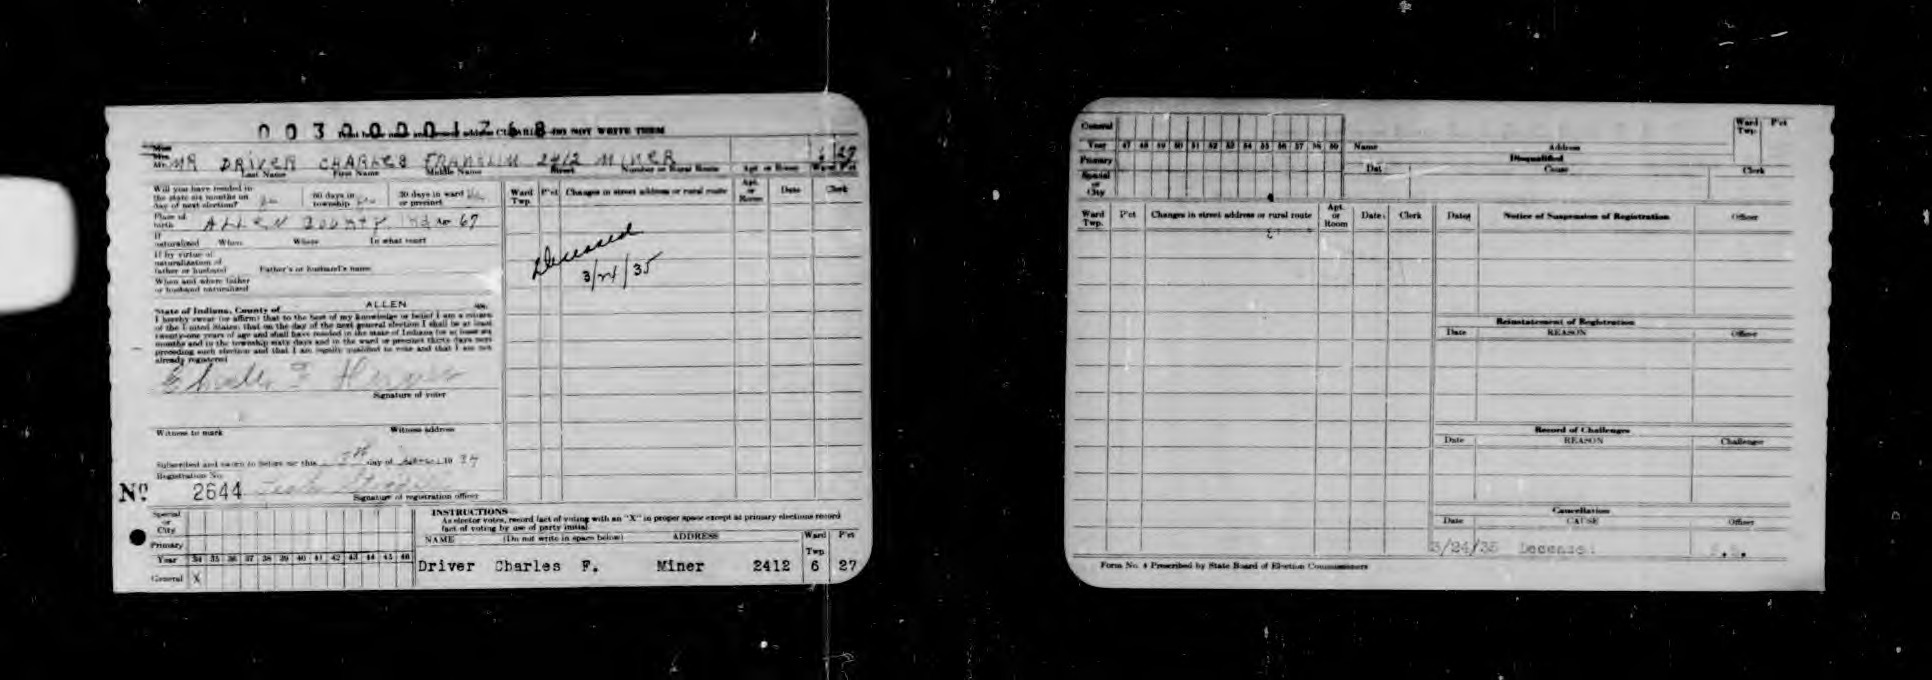 003000001768
Print below name and present address CLEARLY—DO NOT WRITE THEM
Miss
Mrs.
Mr. MR DRIVER CHARLES FRANKLIN 2412 MINER 6 27
Last Name First Name Middle Name Street Number or Rural Route Apt. or Room Ward P'ct
Will you have resided in
the state six months on
day of next election?
60 days in
township
30 days in ward
or precinct
Place of
birth ALLEN COUNTY IND Age 67
If
naturalized When Where In what court
If by virtue of
naturalization of
father or husband Father's or husband's name
When and where father
or husband naturalized
State of Indiana, County of ALLEN ss.
I hereby swear (or affirm) that to the best of my knowledge or belief I am a citizen
of the United States; that on the day of the next general election I shall be at least
twenty-one years of age and shall have resided in the state of Indiana for at least six
months and in the township sixty days and in the ward or precinct thirty days next
preceding such election and that I am legally qualified to vote and that I am not
already registered
Signature of voter
Witness to mark Witness address
Subscribed and sworn to before me this 5th day of 19 34
Registration No.
No. 2644
Signature of registration officer
Ward
Twp. P'ct Changes in street address or rural route Apt.
or
Room Date Clerk
Deceased
3/24/35
Special
or
City
Primary
Year 34 35 36 37 38 39 40 41 42 43 44 45 46
General X
INSTRUCTIONS
As elector votes, record fact of voting with an "X" in proper space except at primary elections record
fact of voting by use of party initial.
NAME (Do not write in space below) ADDRESS Ward
Twp P'ct
Driver Charles F. Miner 2412 6 27
General
Year 47 48 49 50 51 52 53 54 55 56 57 58 59
Primary
Special
or
City
Name Address Ward
Twp. P'ct
Disqualified
Dat Cause Clerk
Ward
Twp. P'ct Changes in street address or rural route Apt.
or
Room Date Clerk
Date Notice of Suspension of Registration Officer
Reinstatement of Registration
Date REASON Officer
Record of Challenges
Date REASON Challenger
Cancellation
Date CAUSE Officer
3/24/35
Form No. 4 Prescribed by State Board of Election Commissioners